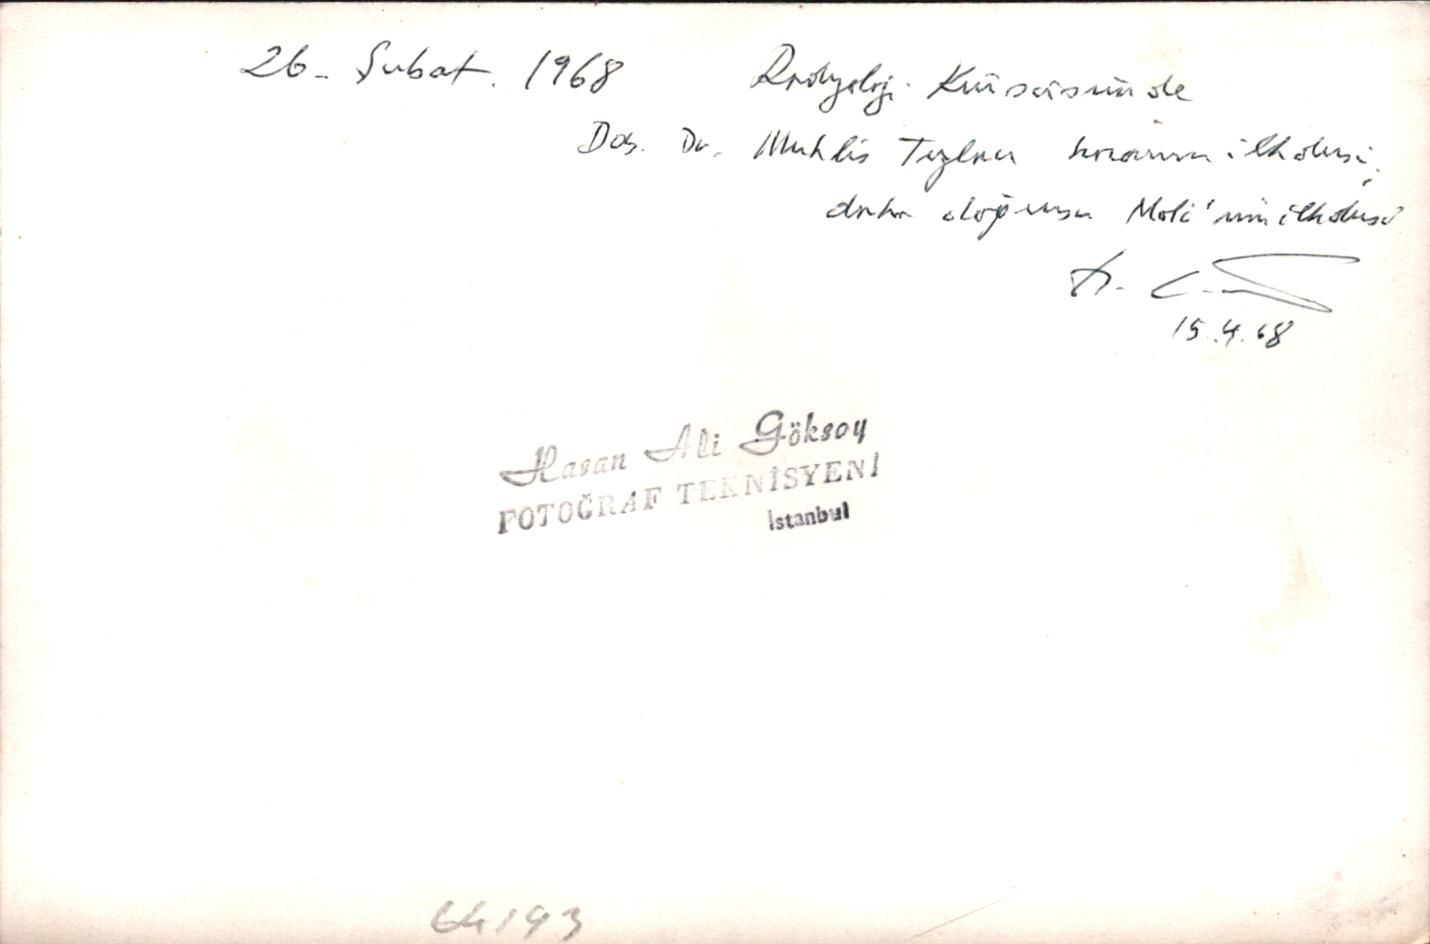 26 - Şubat. 1968 Radyoloji Kürsüsünde
Doç. Dr. Muhlis hocanın ilk dersi,
daha doğrusu ilk dersi
15.4.68
Hasan Ali Göksoy
FOTOĞRAF TEKNİSYENİ
İstanbul
64193